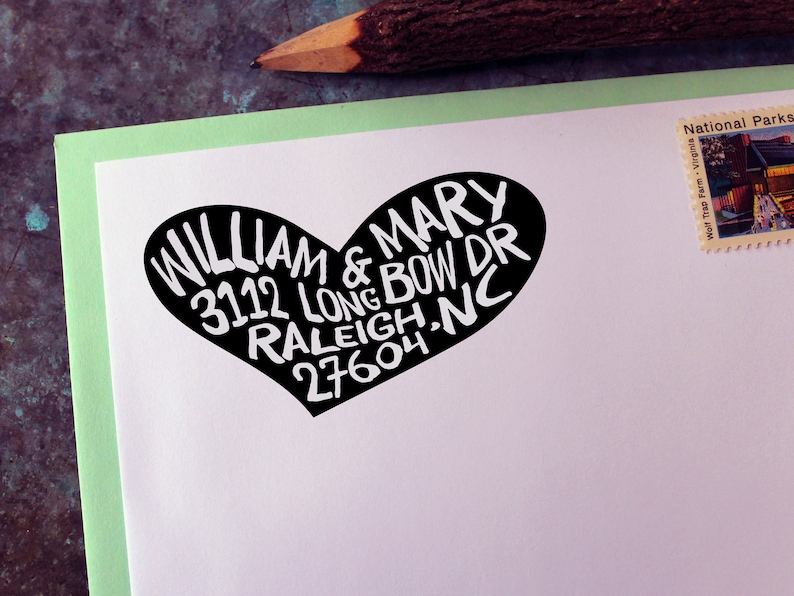 WILLIAM & MARY
3112 LONG BOW DR
RALEIGH. NC
27604
National Parks
Wolf Trap Farm • Virginia